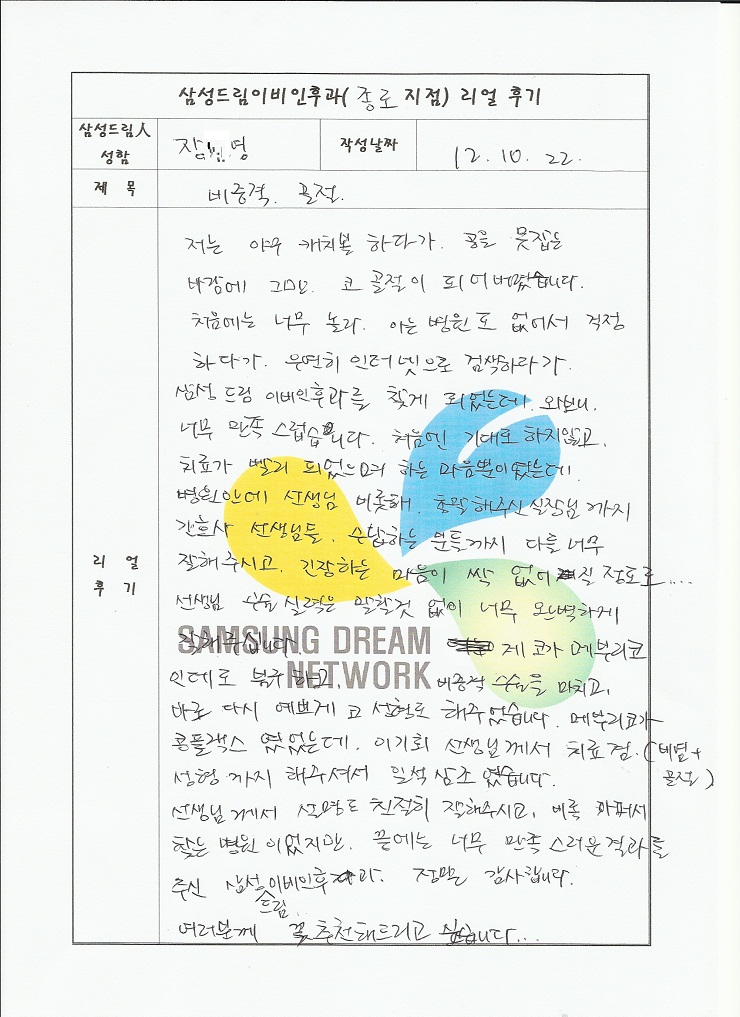 삼성드림이비인후과( 종로 지점) 리얼 후기
삼성드림人 성함
영
작성날짜
12. 10. 22.
제 목
비중격. 골절.
저는 야구 캐치볼 하다가. 공을 못잡는
바람에 그만. 코 골절이 되어버렸습니다.
처음에는 너무 놀라. 아는 병원도 없어서 걱정
하다가. 우연히 인터넷으로 검색하다가.
삼성드림 이비인후과를 찾게 되었는데. 와보니.
너무 만족스럽습니다. 처음엔 기대도 하지않고.
치료가 빨리 되었으며 하는 마음뿐이였는데.
병원안에 선생님 비롯해. 총괄해주신 실장님까지
간호사 선생님들. 수납하는 분들까지 다들 너무
리 얼 후 기
잘해주시고. 긴장하는 마음이 싹 없어질 정도로....
선생님 수술실력은 말할것 없이 너무 완벽하게
잘해주십니다.
SAMSUNG DREAM
제 코가 메부리코
인데도 불구하고.
NETWORK
비중격 수술을 마치고.
바로 다시 예쁘게 코 성형도 해주었습니다. 메부리코가
콤플랙스 였었는데. 이기회 선생님께서 치료겸. (비염+
골절)
성형까지 해주셔서 일석삼조 였습니다.
선생님께서 설명도 친절히 잘해주시고. 비록 아파서
찾는 병원이었지만. 끝에는 너무 만족스러운결과를
주신 삼성드림이비인후과. 정말 감사합니다.
여러분께 꼭 추천해드리고 싶습니다...